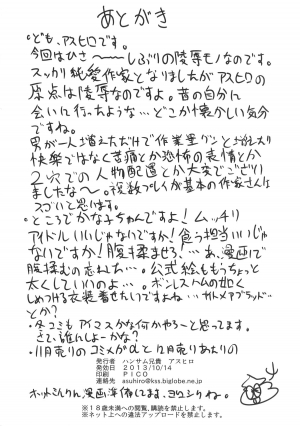 あとがき
・ども、アスヒロです。
今回はひさ〜〜しぶりの陵辱モノなのです。
スッカリ純愛作家となりましたがアスヒロの
原点は陵辱なのですよ。昔の自分に
会いに行ったような…どこか懐かしい気分
ですね。
男が一人増えただけで作業量グンと増えたり
快楽ではなく苦痛とか恐怖の表情とか
2穴での人物配置とか大変でござり
ましたな〜。複数プレイが基本の作家さんは
スゴいと思います。
・ところでかな子ちゃんですよ!ムッチリ
アイドルいいじゃないですか!食う担当いいじゃ
ないですか!腹揉ませろ!…あ、漫画で
腹揉むの忘れた…。公式絵ももうちょっと
太くしていいのよ…。ボンレスハムの如く
しめつける衣装着せたいですよね…
とか?
・冬コミもアイマスかな何かやろ〜と思ってます。
さて、誰にしよーかな?
・11月売りのコミメガαと12月売りあたりの
発行 ハンサム兄貴 アスヒロ
発効日 2013/10/14
印刷 PICO
連絡先 asuhiro@kss.biglobe.ne.jp
漫画準備してます、ヨロシクね。
※18歳未満への閲覧、購読を禁止します。
※ネット上への違法アップロードを禁止します。